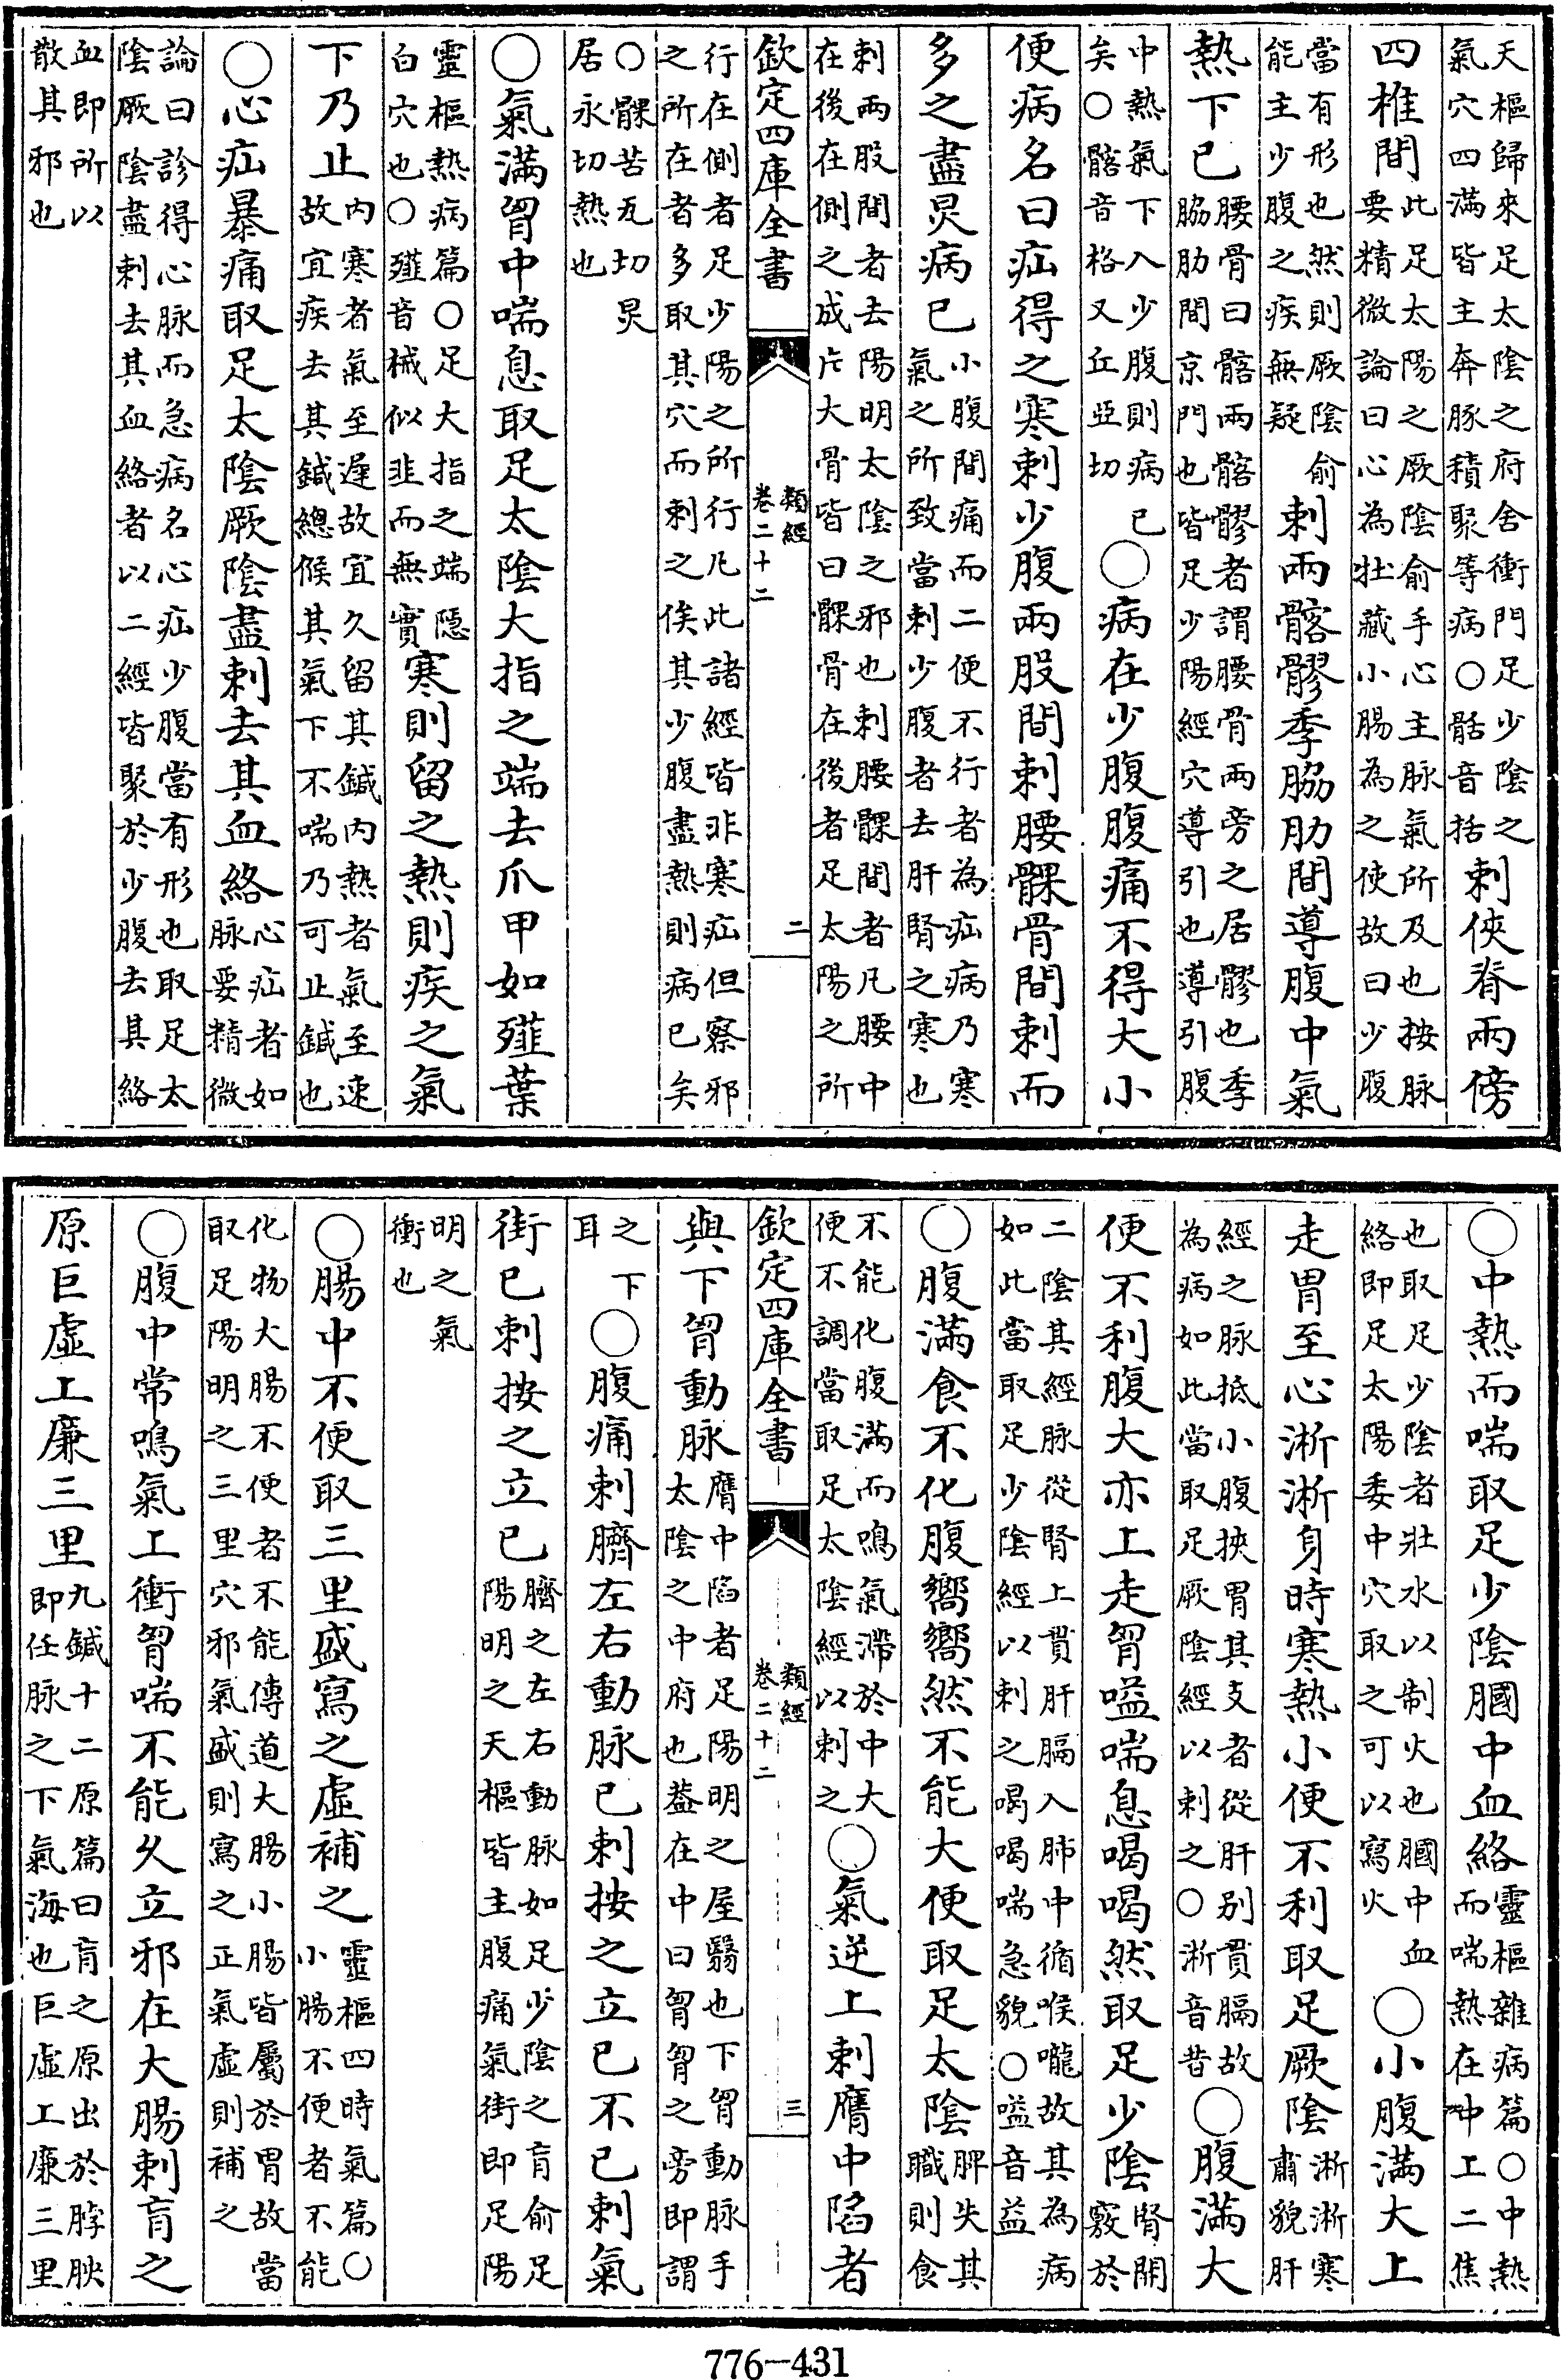 天樞歸來足太陰之府舍衝門足少陰之
氣穴四滿皆主奔豚積聚等病○䯏音括
刺俠脊兩傍
四椎間
此足太陽之厥陰俞手心主脉氣所及也按脉
要精微論曰心為壯藏小腸為之使故曰少腹
當有形也然則厥陰俞
能主少腹之疾無疑
刺兩髂髎季脇肋間導腹中氣
熱下已
腰骨曰髂兩髂髎者謂腰骨兩旁之居髎也季
脇肋間京門也皆足少陽經穴導引也導引腹
中熱氣下入少腹則病已
矣○髂音格又丘亞切
○病在少腹腹痛不得大小
便病名曰疝得之寒刺少腹兩股間刺腰髁骨間刺而
多之盡炅病已
小腹間痛而二便不行者為疝病乃寒
氣之所致當刺少腹者去肝腎之寒也
刺兩股間者去陽明太陰之邪也刺腰髁間者凡腰中
在後在側之成片大骨皆曰髁骨在後者足太陽之所
欽定四庫全書
類經
卷二十二
二
行在側者足少陽之所行凡此諸經皆非寒疝但察邪
之所在者多取其穴而刺之俟其少腹盡熱則病已矣
○髁苦瓦切炅
居永切熱也
○氣滿胷中喘息取足太陰大指之端去爪甲如薤葉
靈樞熱病篇○足大指之端隠
白穴也○薤音械似韭而無實
寒則留之熱則疾之氣
下乃止
內寒者氣至遲故宜久留其鍼內熱者氣至速
故宜疾去其鍼總候其氣下不喘乃可止鍼也
○心疝暴痛取足太陰厥陰盡刺去其血絡
心疝者如
脉要精微
論曰診得心脉而急病名心疝少腹當有形也取足太
陰厥陰盡刺去其血絡者以二經皆聚於少腹去其絡
血即所以
散其邪也
○中熱而喘取足少陰膕中血絡
靈樞雜病篇○中熱
而喘熱在中上二焦
也取足少陰者壯水以制火也膕中血
絡即足太陽委中穴取之可以寫火
○小腹滿大上
走胃至心淅淅身時寒熱小便不利取足厥陰
淅淅寒
肅貌肝
經之脉抵小腹挾胃其支者從肝別貫膈故
為病如此當取足厥陰經以刺之○淅音昔
○腹滿大
便不利腹大亦上走胷嗌喘息喝喝然取足少陰
腎開
竅於
二陰其經脉從腎上貫肝膈入肺中循喉嚨故其為病
如此當取足少陰經以刺之喝喝喘急貌○嗌音益
○腹滿食不化腹嚮嚮然不能大便取足太陰
脾失其
職則食
不能化腹滿而鳴氣滯於中大
便不調當取足太陰經以刺之
○氣逆上刺膺中陷者
欽定四庫全書
類經
卷二十二
三
與下胷動脉
膺中陷者足陽明之屋翳也下胷動脉手
太陰之中府也蓋在中曰胷胷之旁即謂
之下
耳
○腹痛刺臍左右動脉已刺按之立已不已刺氣
街已刺按之立已
臍之左右動脉如足少陰之肓俞足
陽明之天樞皆主腹痛氣街即足陽
明之氣
衝也
○腸中不便取三里盛寫之虛補之
靈樞四時氣篇○
小腸不便者不能
化物大腸不便者不能傳道大腸小腸皆屬於胃故當
取足陽明之三里穴邪氣盛則寫之正氣虛則補之
○腹中常鳴氣上衝胷喘不能久立邪在大腸刺肓之
原巨虛上廉三里
九鍼十二原篇曰肓之原出於脖胦
即任脉之下氣海也巨虛上廉三里
776-431